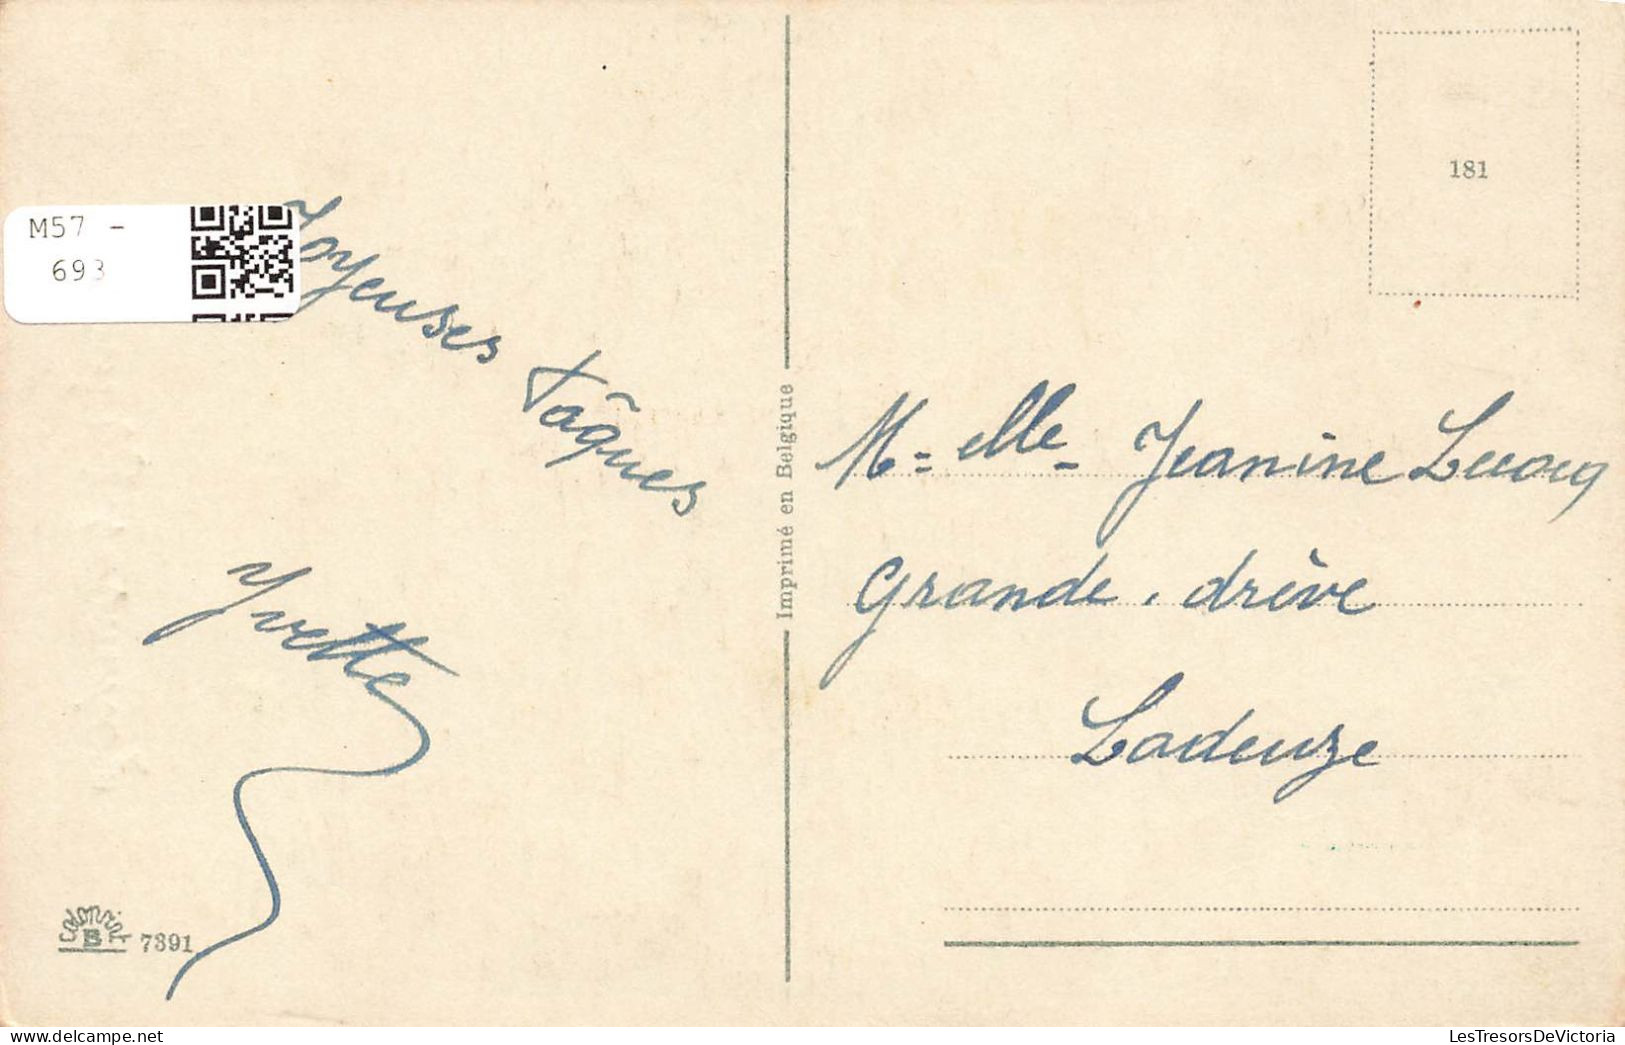 M57 -
693
Joyeuses Pâques
Yvette
Colorprint
B
7391
Imprimé en Belgique
181
M=elle- Jeanine Lecocq
Grande. drève
Ladeuze
LesTresorsDeVictoria.com